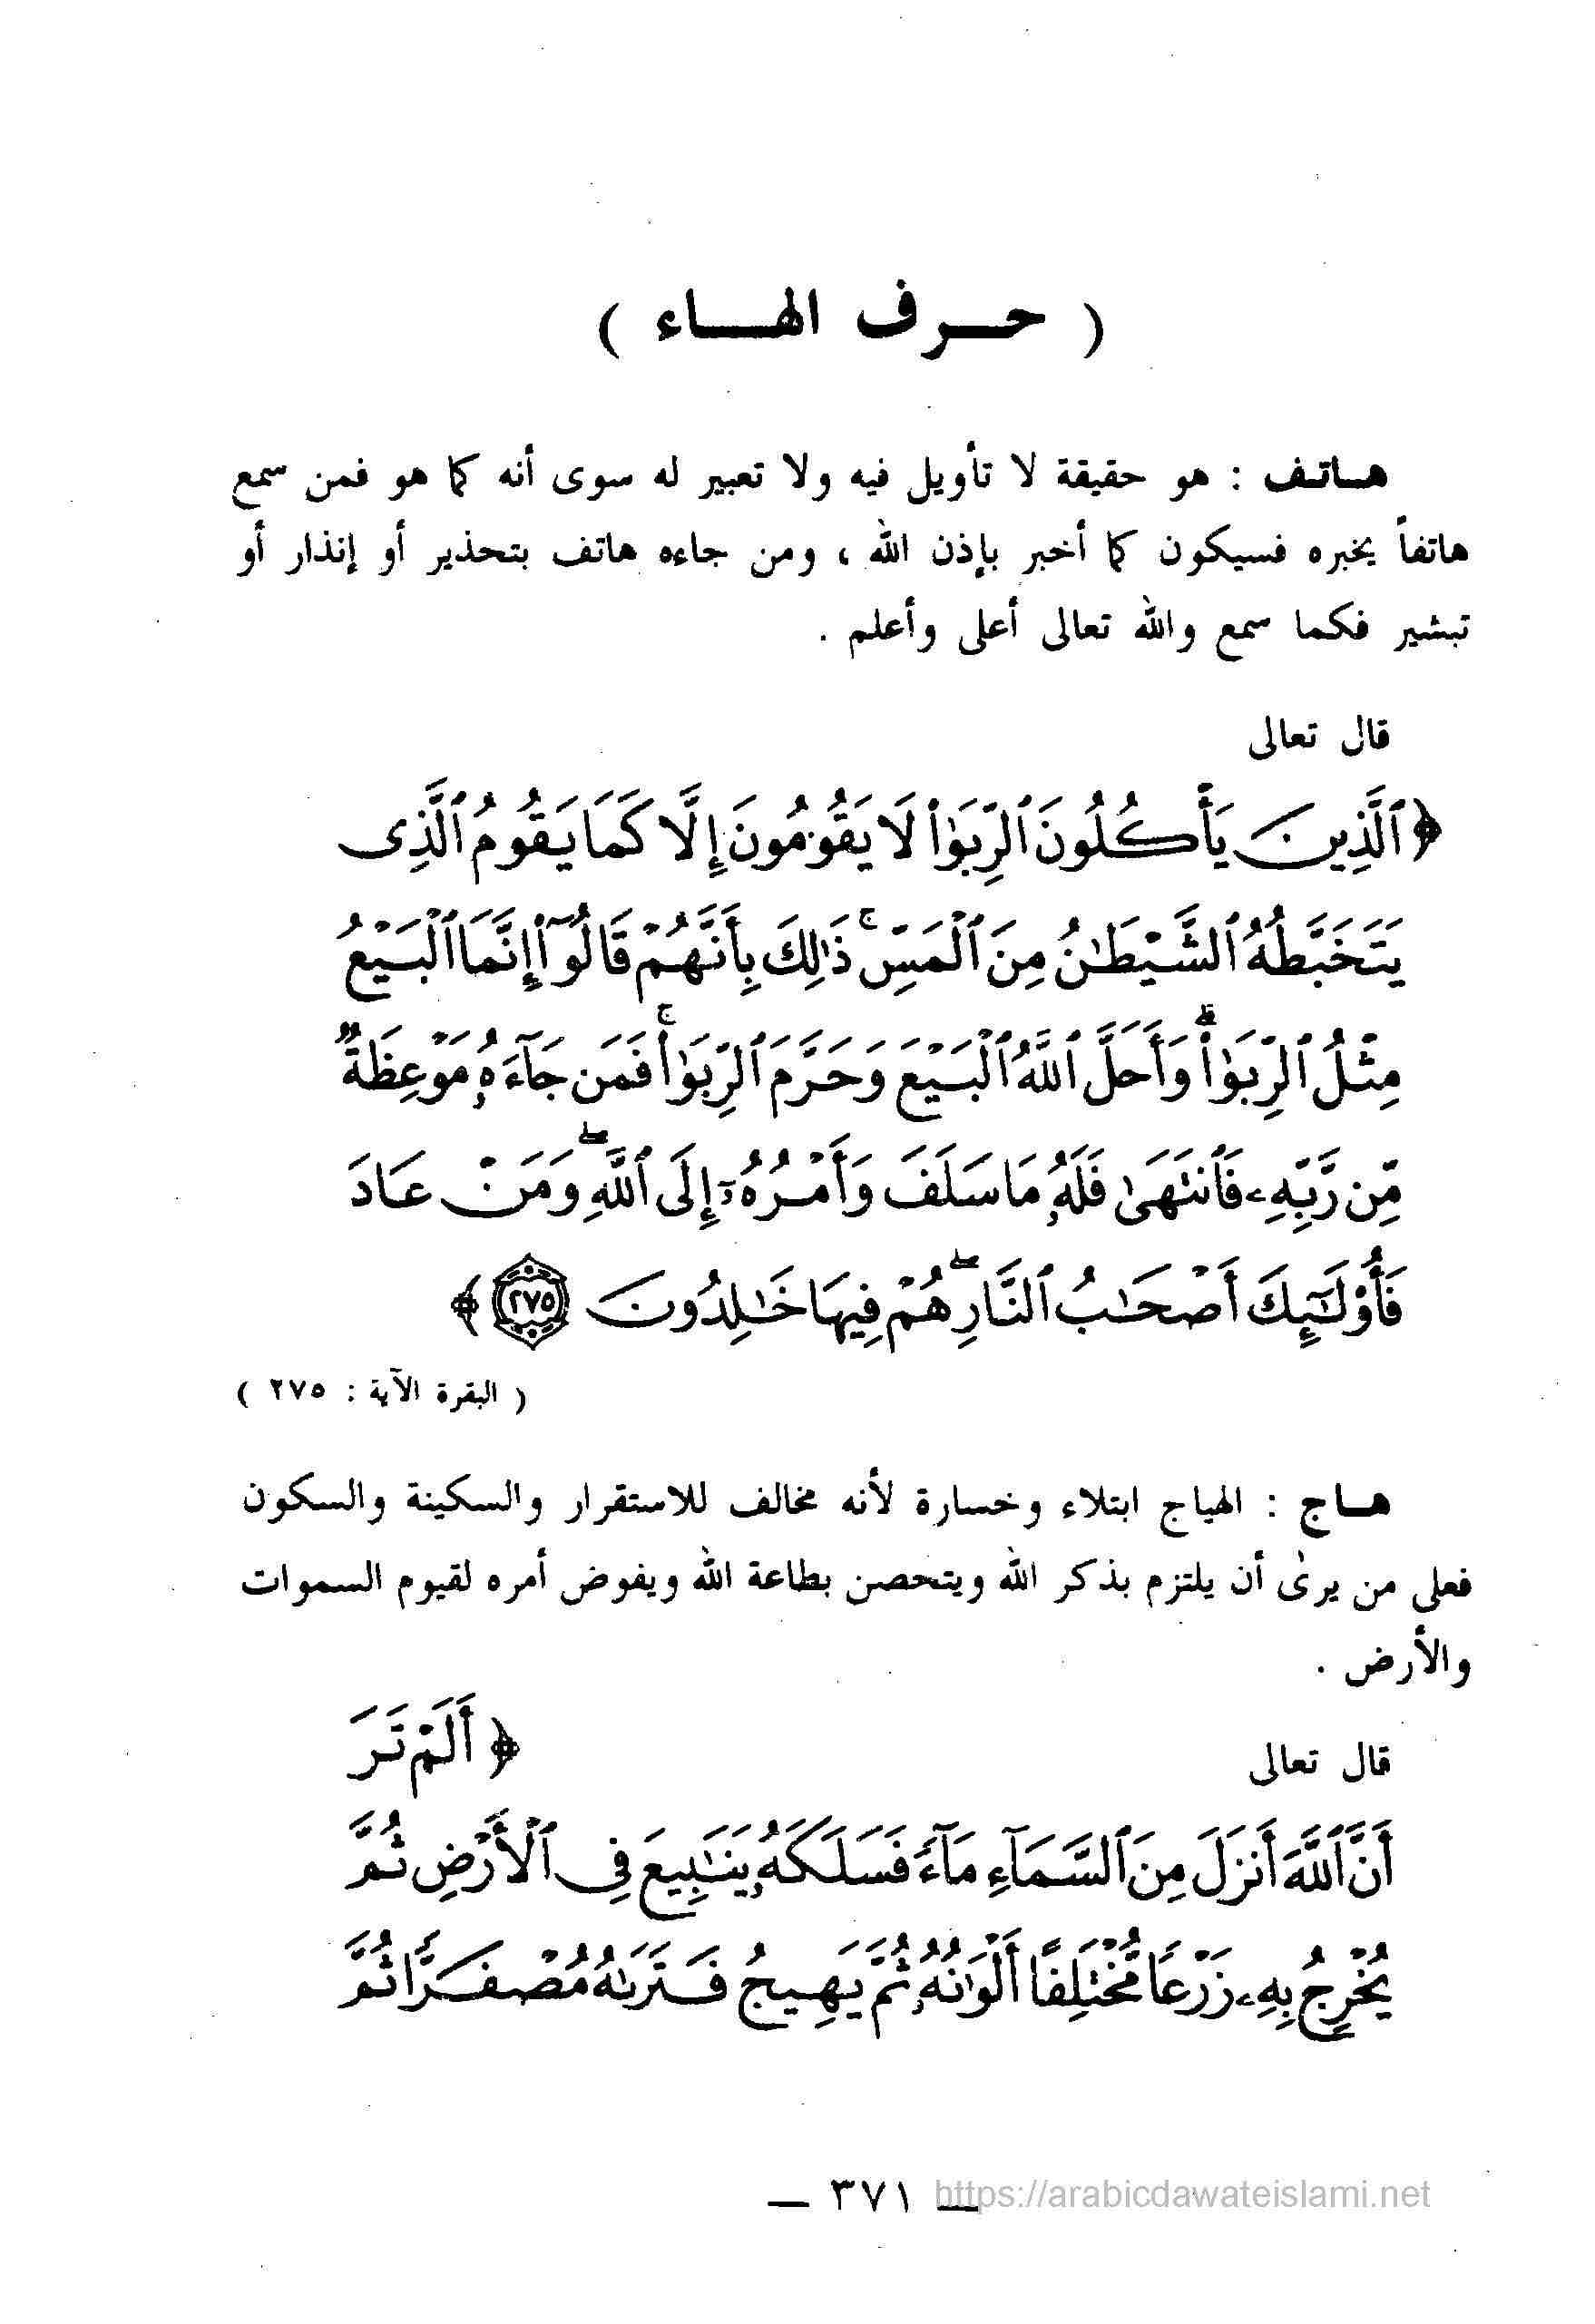 ( حـــرف الهـــاء )
هـاتـف : هو حقيقة لا تأويل فيه ولا تعبير له سوى أنه كما هو فمن سمع
هاتفاً يخبره فسيكون كما أخبر بإذن الله ، ومن جاءه هاتف بتحذير أو إنذار أو
تبشير فكما سمع والله تعالى أعلى وأعلم .
قال تعالى
﴿ ٱلَّذِينَ يَأْكُلُونَ ٱلرِّبَوٰا۟ لَا يَقُومُونَ إِلَّا كَمَا يَقُومُ ٱلَّذِى
يَتَخَبَّطُهُ ٱلشَّيْطَـٰنُ مِنَ ٱلْمَسِّ ۚ ذَٰلِكَ بِأَنَّهُمْ قَالُوٓا۟ إِنَّمَا ٱلْبَيْعُ
مِثْلُ ٱلرِّبَوٰا۟ ۗ وَأَحَلَّ ٱللَّهُ ٱلْبَيْعَ وَحَرَّمَ ٱلرِّبَوٰا۟ ۚ فَمَن جَآءَهُۥ مَوْعِظَةٌ
مِّن رَّبِّهِۦ فَٱنتَهَىٰ فَلَهُۥ مَا سَلَفَ وَأَمْرُهُۥٓ إِلَى ٱللَّهِ ۖ وَمَنْ عَادَ
فَأُو۟لَـٰٓئِكَ أَصْحَـٰبُ ٱلنَّارِ ۖ هُمْ فِيهَا خَـٰلِدُونَ ٢٧٥ ﴾
( البقرة الآية : ٢٧٥ )
هـاج : الهياج ابتلاء وخسارة لأنه مخالف للاستقرار والسكينة والسكون
فعلى من يرىٰ أن يلتزم بذكر الله ويتحصن بطاعة الله ويفوض أمره لقيوم السموات
والأرض .
قال تعالى ﴿ أَلَمْ تَرَ
أَنَّ ٱللَّهَ أَنزَلَ مِنَ ٱلسَّمَآءِ مَآءً فَسَلَكَهُۥ يَنَـٰبِيعَ فِى ٱلْأَرْضِ ثُمَّ
يُخْرِجُ بِهِۦ زَرْعًا مُّخْتَلِفًا أَلْوَٰنُهُۥ ثُمَّ يَهِيجُ فَتَرَىٰهُ مُصْفَرًّا ثُمَّ
— ٣٧١ — https://arabicdawateislami.net